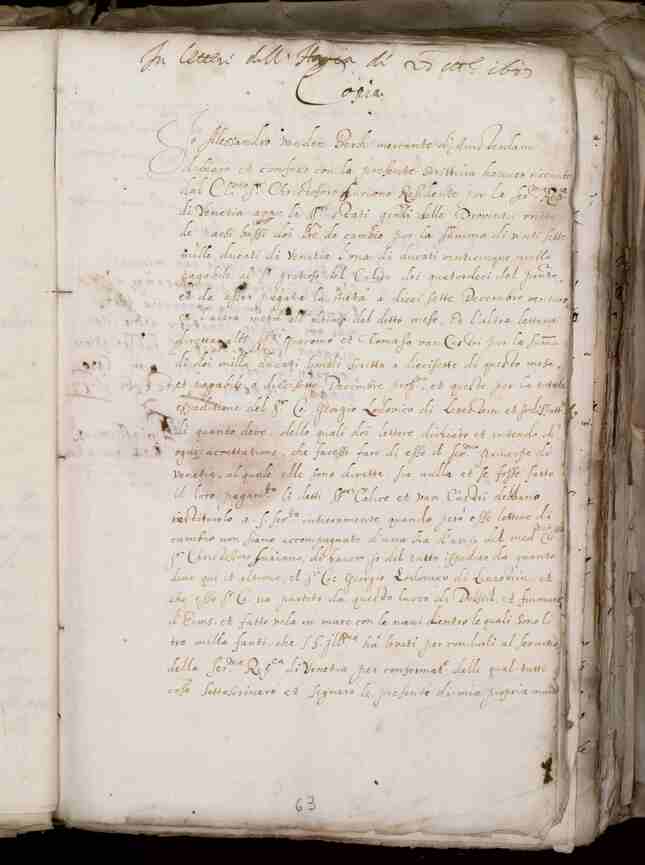 In lettere dell' Haya di 23 ott.e 1617
Copia.
Io Alessandro vander Berch mercante di Amsterdam
dichiaro et confesso con la presente scrittura haver ricevuto
dal Cl.mo S.r Christoforo Suriano Residente per la Ser.ma Rep.ca
di Venetia appo li SS.ri Stati g.nali delle Provintie unite
de paesi bassi doi l're de cambio per la summa di vinti sette
mille ducati di Venetia l'una di ducati venticinque mille
pagabili al S.r del Calice dei quatordeci del pnte,
et da esser pagata la metà a dieci sette Decembre venturo
et l'altra metà all' ultimo del detto mese. Et l'altra lettera
diretta alli SS.ri Giacomo et Tomaso van Castri per la summa
di doi mille ducati simili scritta a diecisette di questo mese,
et pagabile a diecisette Decembre pross.o, et queste per la totale
espeditione del S.r Co. Giorgio Lodovico di Levestein et
di quanto deve. delle quali doi lettere dichiaro et intendo ch'
ogni accettatione, che facessi fare di esse il Ser.mo Prencipe di
Venetia, al quale elle sono dirette, sia nulla et se fosse fatto
il loro pagam.to li detti SS.ri Calice et van Castri debbano
restituirlo a S. Ser.tà intieramente, quando però esse lettere di
cambio non siano accompagnate d'una sua d'aviso del med.mo
S.r Christoforo Suriano, de haver io del tutto sodisfatto quanto
devo qui et altrove, el S.r Co: Giorgio Lodovico di Levestein, et
che esso S.r Co. sia partito da questo luoco di Delfzil, et fiumare
d'Ems, et fatto vela in mare con le navi dentro le quali sono li
tre milla fanti, che S.S. Ill.ma ha levati per condurli al servitio
della Ser.ma Rep.ca di Venetia per confermat.e delle qual tutte
cose sottoscrivero et segnaro la presente di mia propria mano
63